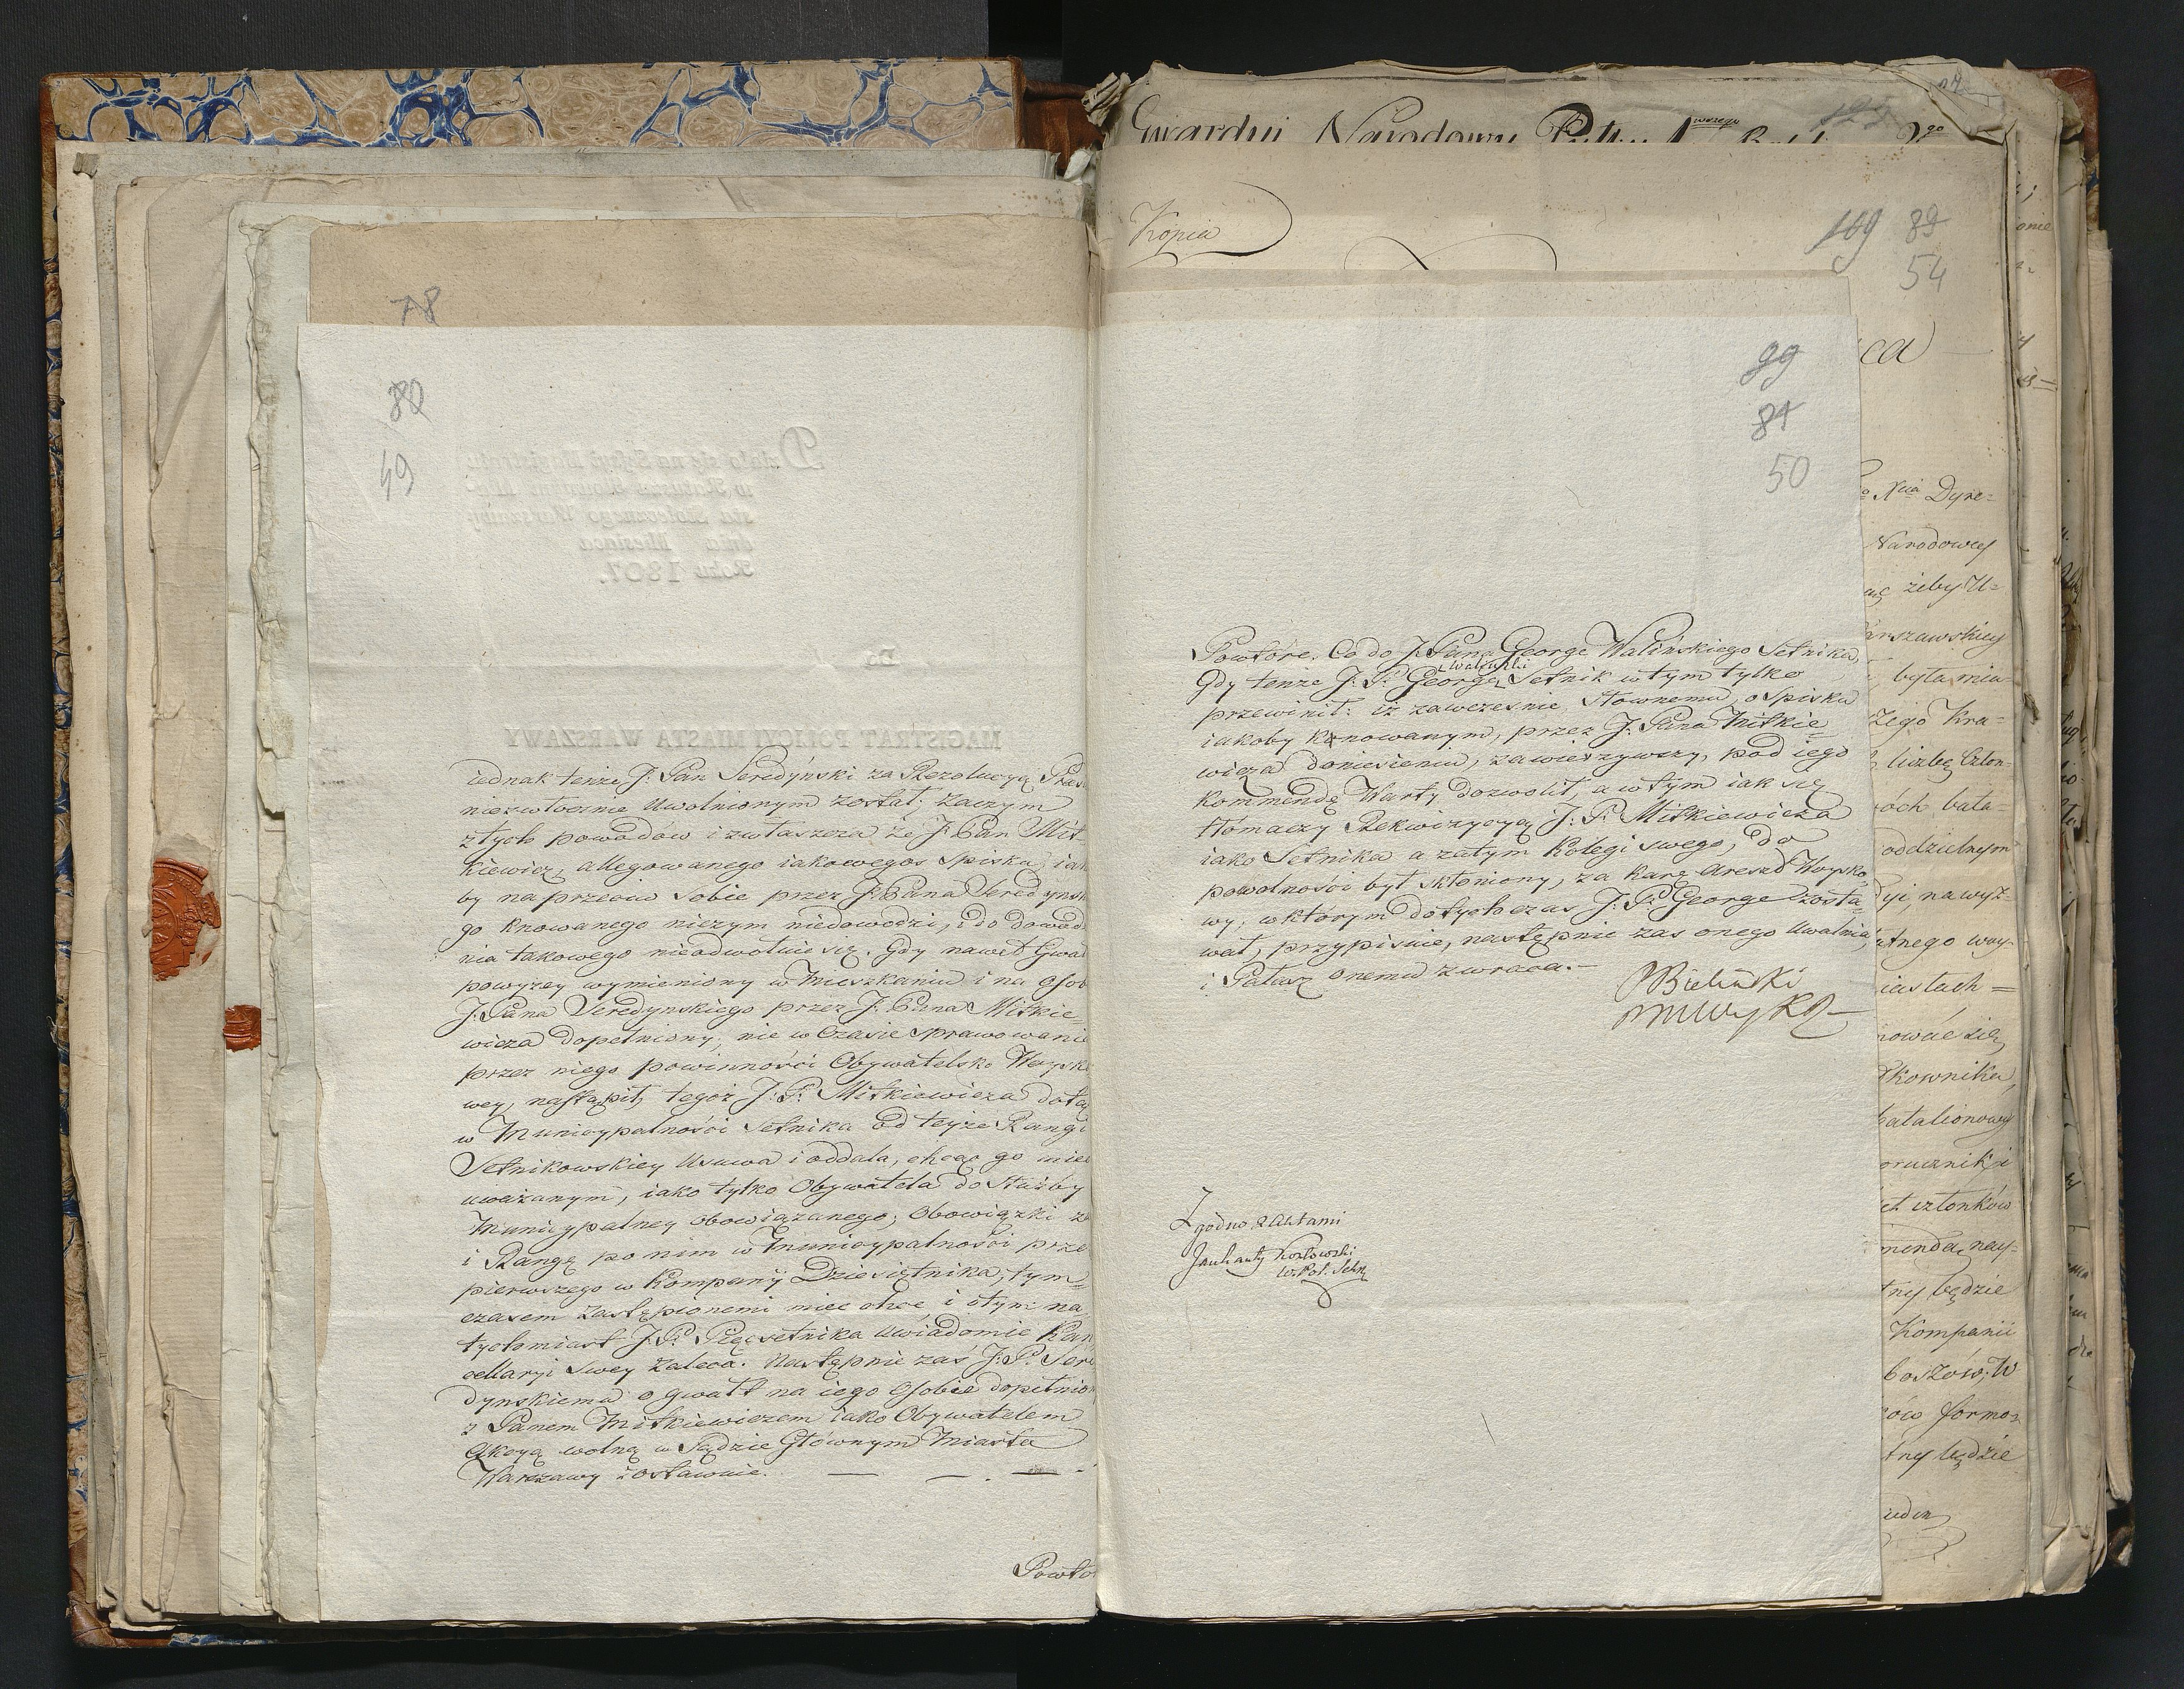 78
80
49
iednak tenże J: Pan Seredyński za Rezolucyą
niezwłocznie uwolnionym został; zaczym
z tych powodów i zwłaszcza że J: Pan Mit-
kiewicz, allegowanego iakowegoś Spisku iak
by naprzeciw sobie przez J: Pana Seredyńsk
go knowanego niczym niedowodzi, i do dowad
nia takowego nieodwołuie się. Gdy nawet Gwa
powyżey wymieniony w Mieszkaniu i na Osob
J: Pana Seredynskiego przez J: Pana Mitkie-
wicza dopełniony, nie w Czasie Sprawowanie
przez niego powinności Obywatelsko Woysk
wey, nastąpił, tegoż J: P: Mitkiewicza dotą
w Municypalności Setnika od teyże Rangi
Setnikowskiey Usuwa i oddala, chcąc go mieć
uważanym, iako tylko Obywatela do Służby
Municypalney obowiązanego; Obowiązki za
i Rangę po nim w Municypalności prze
pierwszego w Kompanij Dziesiętnika, tym-
czasem zastępionemi mieć chce, i o tym na
tychmiast J: P: Pięćsetnika Uwiadomić Kan
cellaryi Swey zaleca. Następnie zaś J: P: Sere
dynskiemu o gwałt na iego Osobie dopełnion
z Panem Mitkiewiczem iako Obywatelem
Akcyą wolną w Sądzie Głównym Miasta
Warszawy zostawuie.
Powto
MAGISTRAT POLICYI MIASTA WARSZAWY
Działo się na Sessyi Magistratu
Miesiąca
Roku 1807.
Do
Gwardyi Narodowey Pułku 1wszego 2go
125
Kopia
109 89
54
99
84
50
Powtóre. Co do J: Pana George Walińskiego Setnika,
Gdy tenże J: P: George Waliński Setnik w tym tylko
przewinił: iż zawcześnie, słownemu, o Spisku
iakoby knowanym, przez J: Pana Mitkie-
wicza doniesieniu, zawierzywszy, pod iego
kommendę Warty dozwolił, a w tym iak się
tłomaczy Rekwizycyą J: P: Mitkiewicza
iako Setnika a zatym Kolegi swego, do
powolności był skłoniony, za karę Areszd Woysko
wy, w którym dotychczas J: P: George zosta-
wał, przypisuie, następnie zas onego Uwalnia,
i Pałasz onemu zwraca.—
Bieliński
Zgodno z Aktami
Kozłowski
w. Pol. Sekr
ca
Xcia Dyre=
Narodowey
żeby U=
arszawskiey
była mia-
żego Kra=
liczbę Człon=
óch bata=
oddzielnym
yi, na wyż=
tnego woy-
iastach =
nować się
kownika,
batalionowy
orucznik i
ch członków
menda, nay=
tny będzie
Kompanii
boszów. W
ów formo=
tny będzie